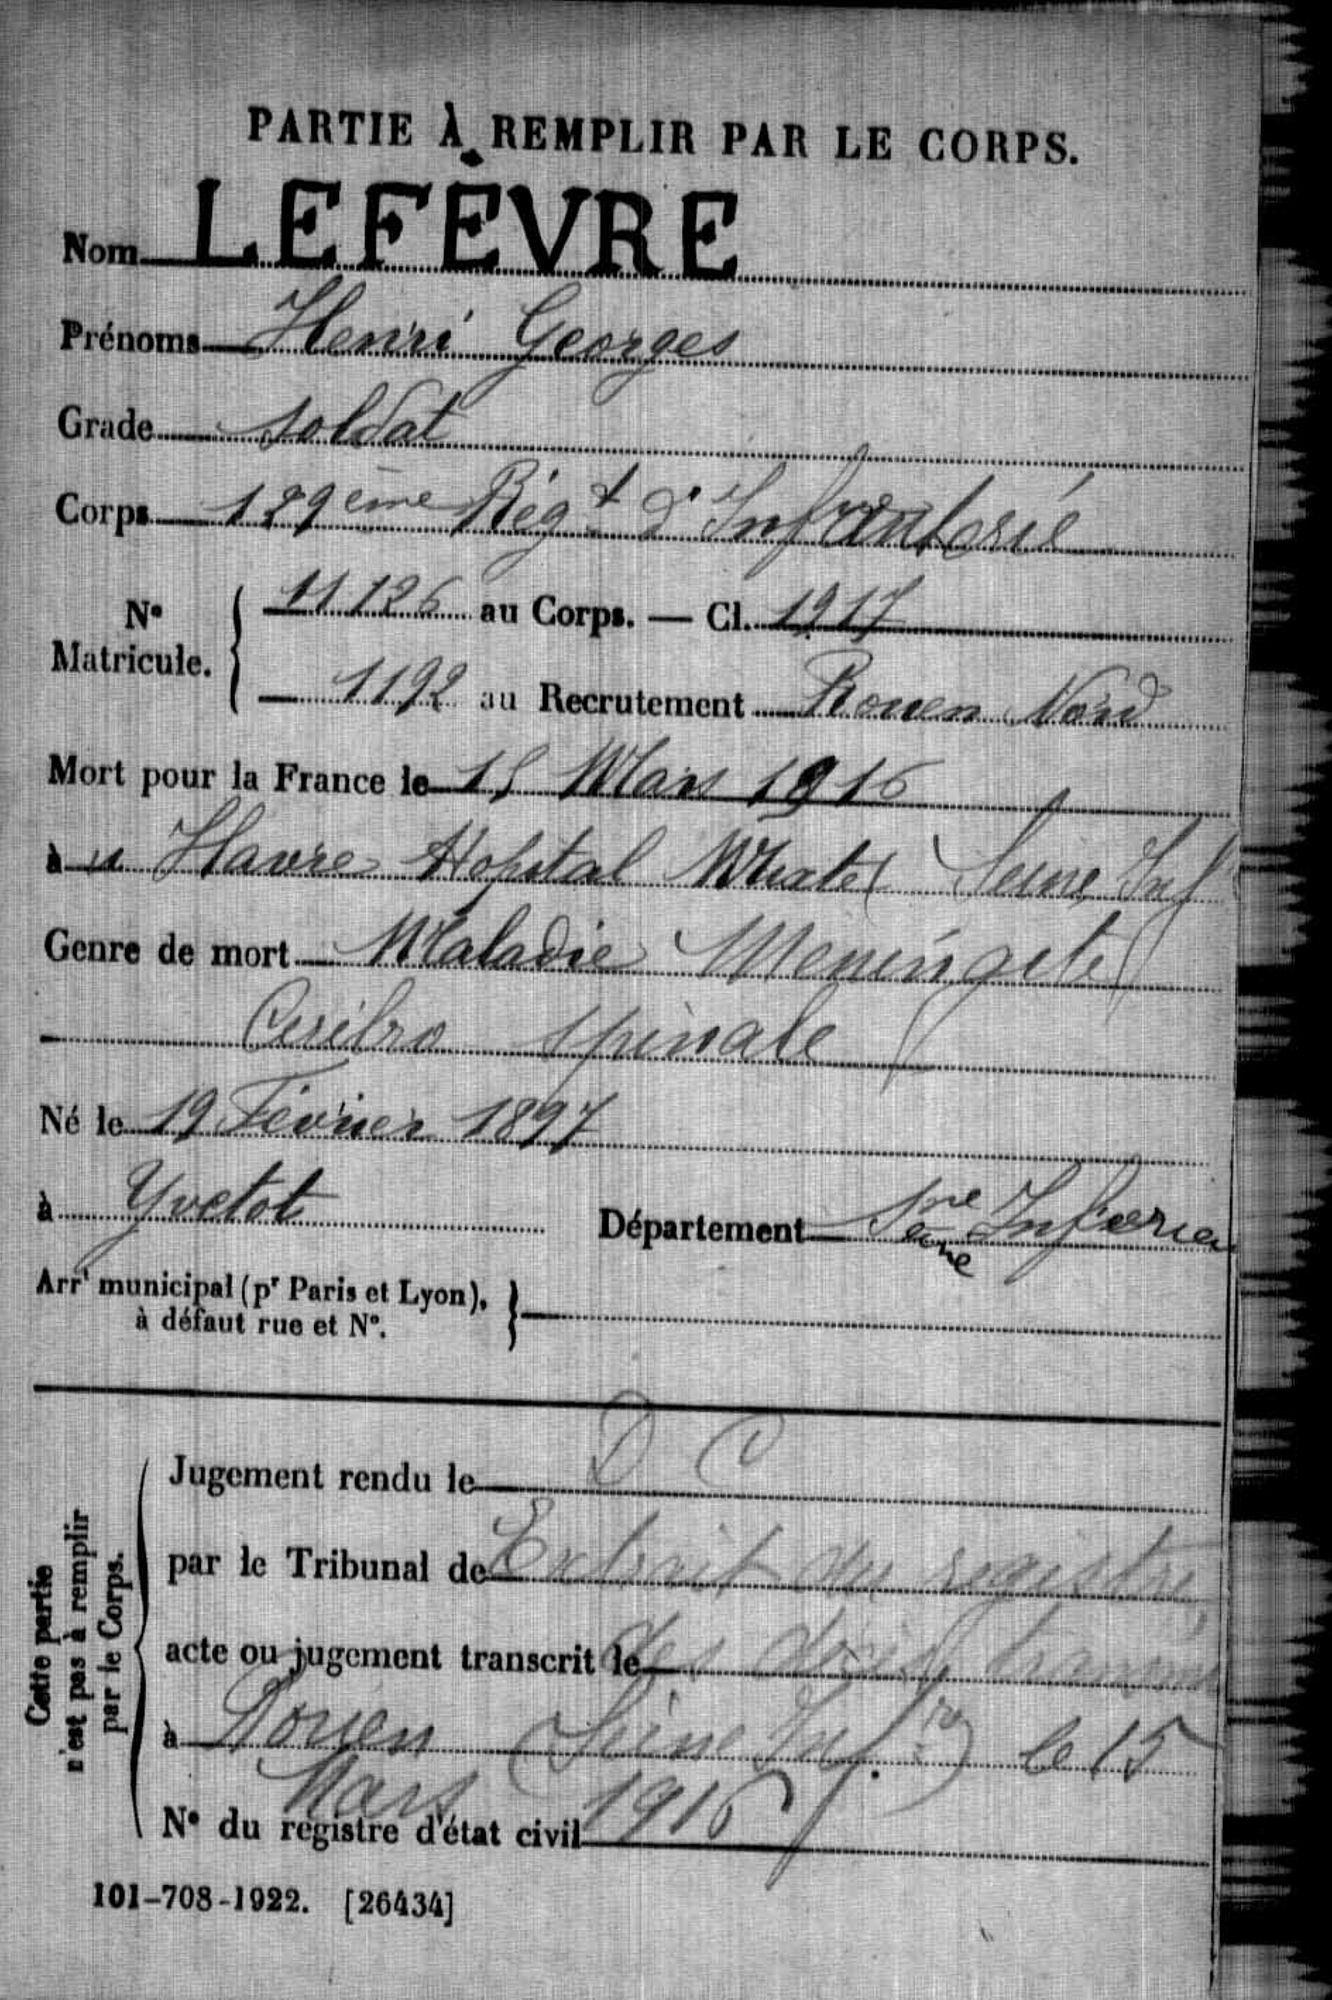 PARTIE À REMPLIR PAR LE CORPS.
Nom LEFÈVRE
Prénoms Henri Georges
Grade soldat
Corps 129ème Régt d'Infanterie
N° Matricule. { 11126 au Corps. — Cl. 1917
1192 au Recrutement Rouen Nord
Mort pour la France le 15 Mars 1916
à u Havre Hopital Mixte Seine Inf
Genre de mort Maladie Meningite
Cerébro spinale
Né le 19 Février 1897
à Yvetot Département Seine Inférieu
Arrt municipal (pr Paris et Lyon), à défaut rue et N°. }
D C
Jugement rendu le
par le Tribunal de Extrait du registre
acte ou jugement transcrit le des décès
à Rouen (Seine Infre) le 15
Mars 1916
N° du registre d'état civil
Cette partie n'est pas à remplir par le Corps.
101-708-1922. [26434]